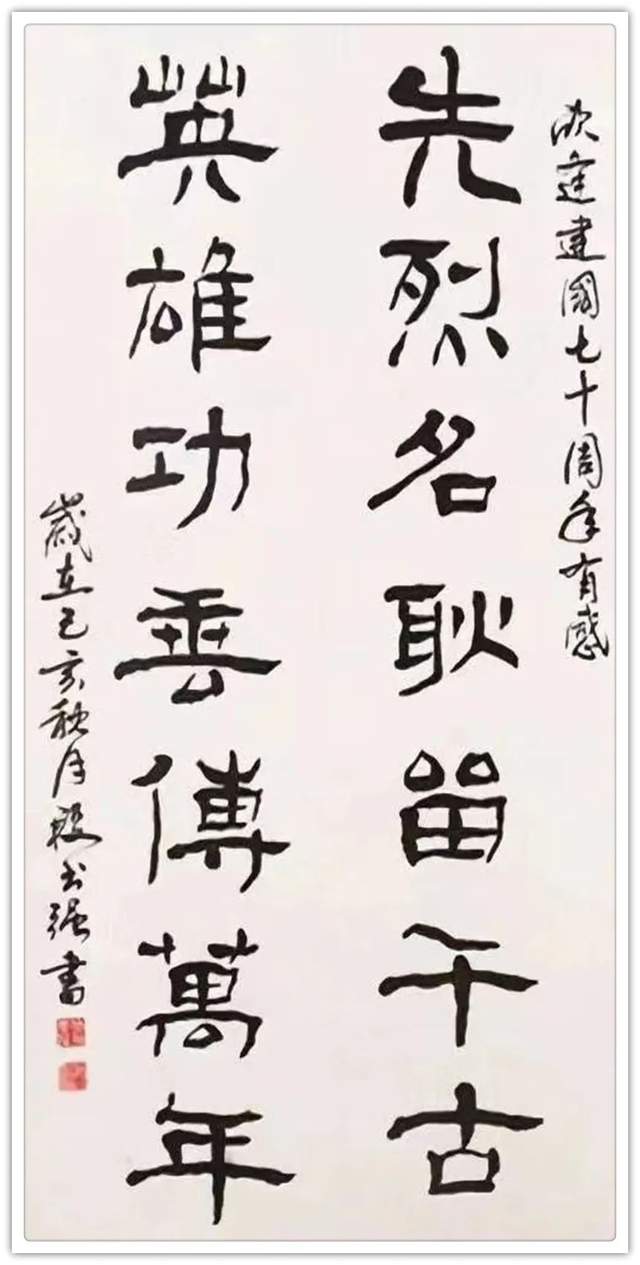 欣逢建國七十周年有感
先烈名耿留千古
英雄功垂傳萬年
歲在己亥秋月强書